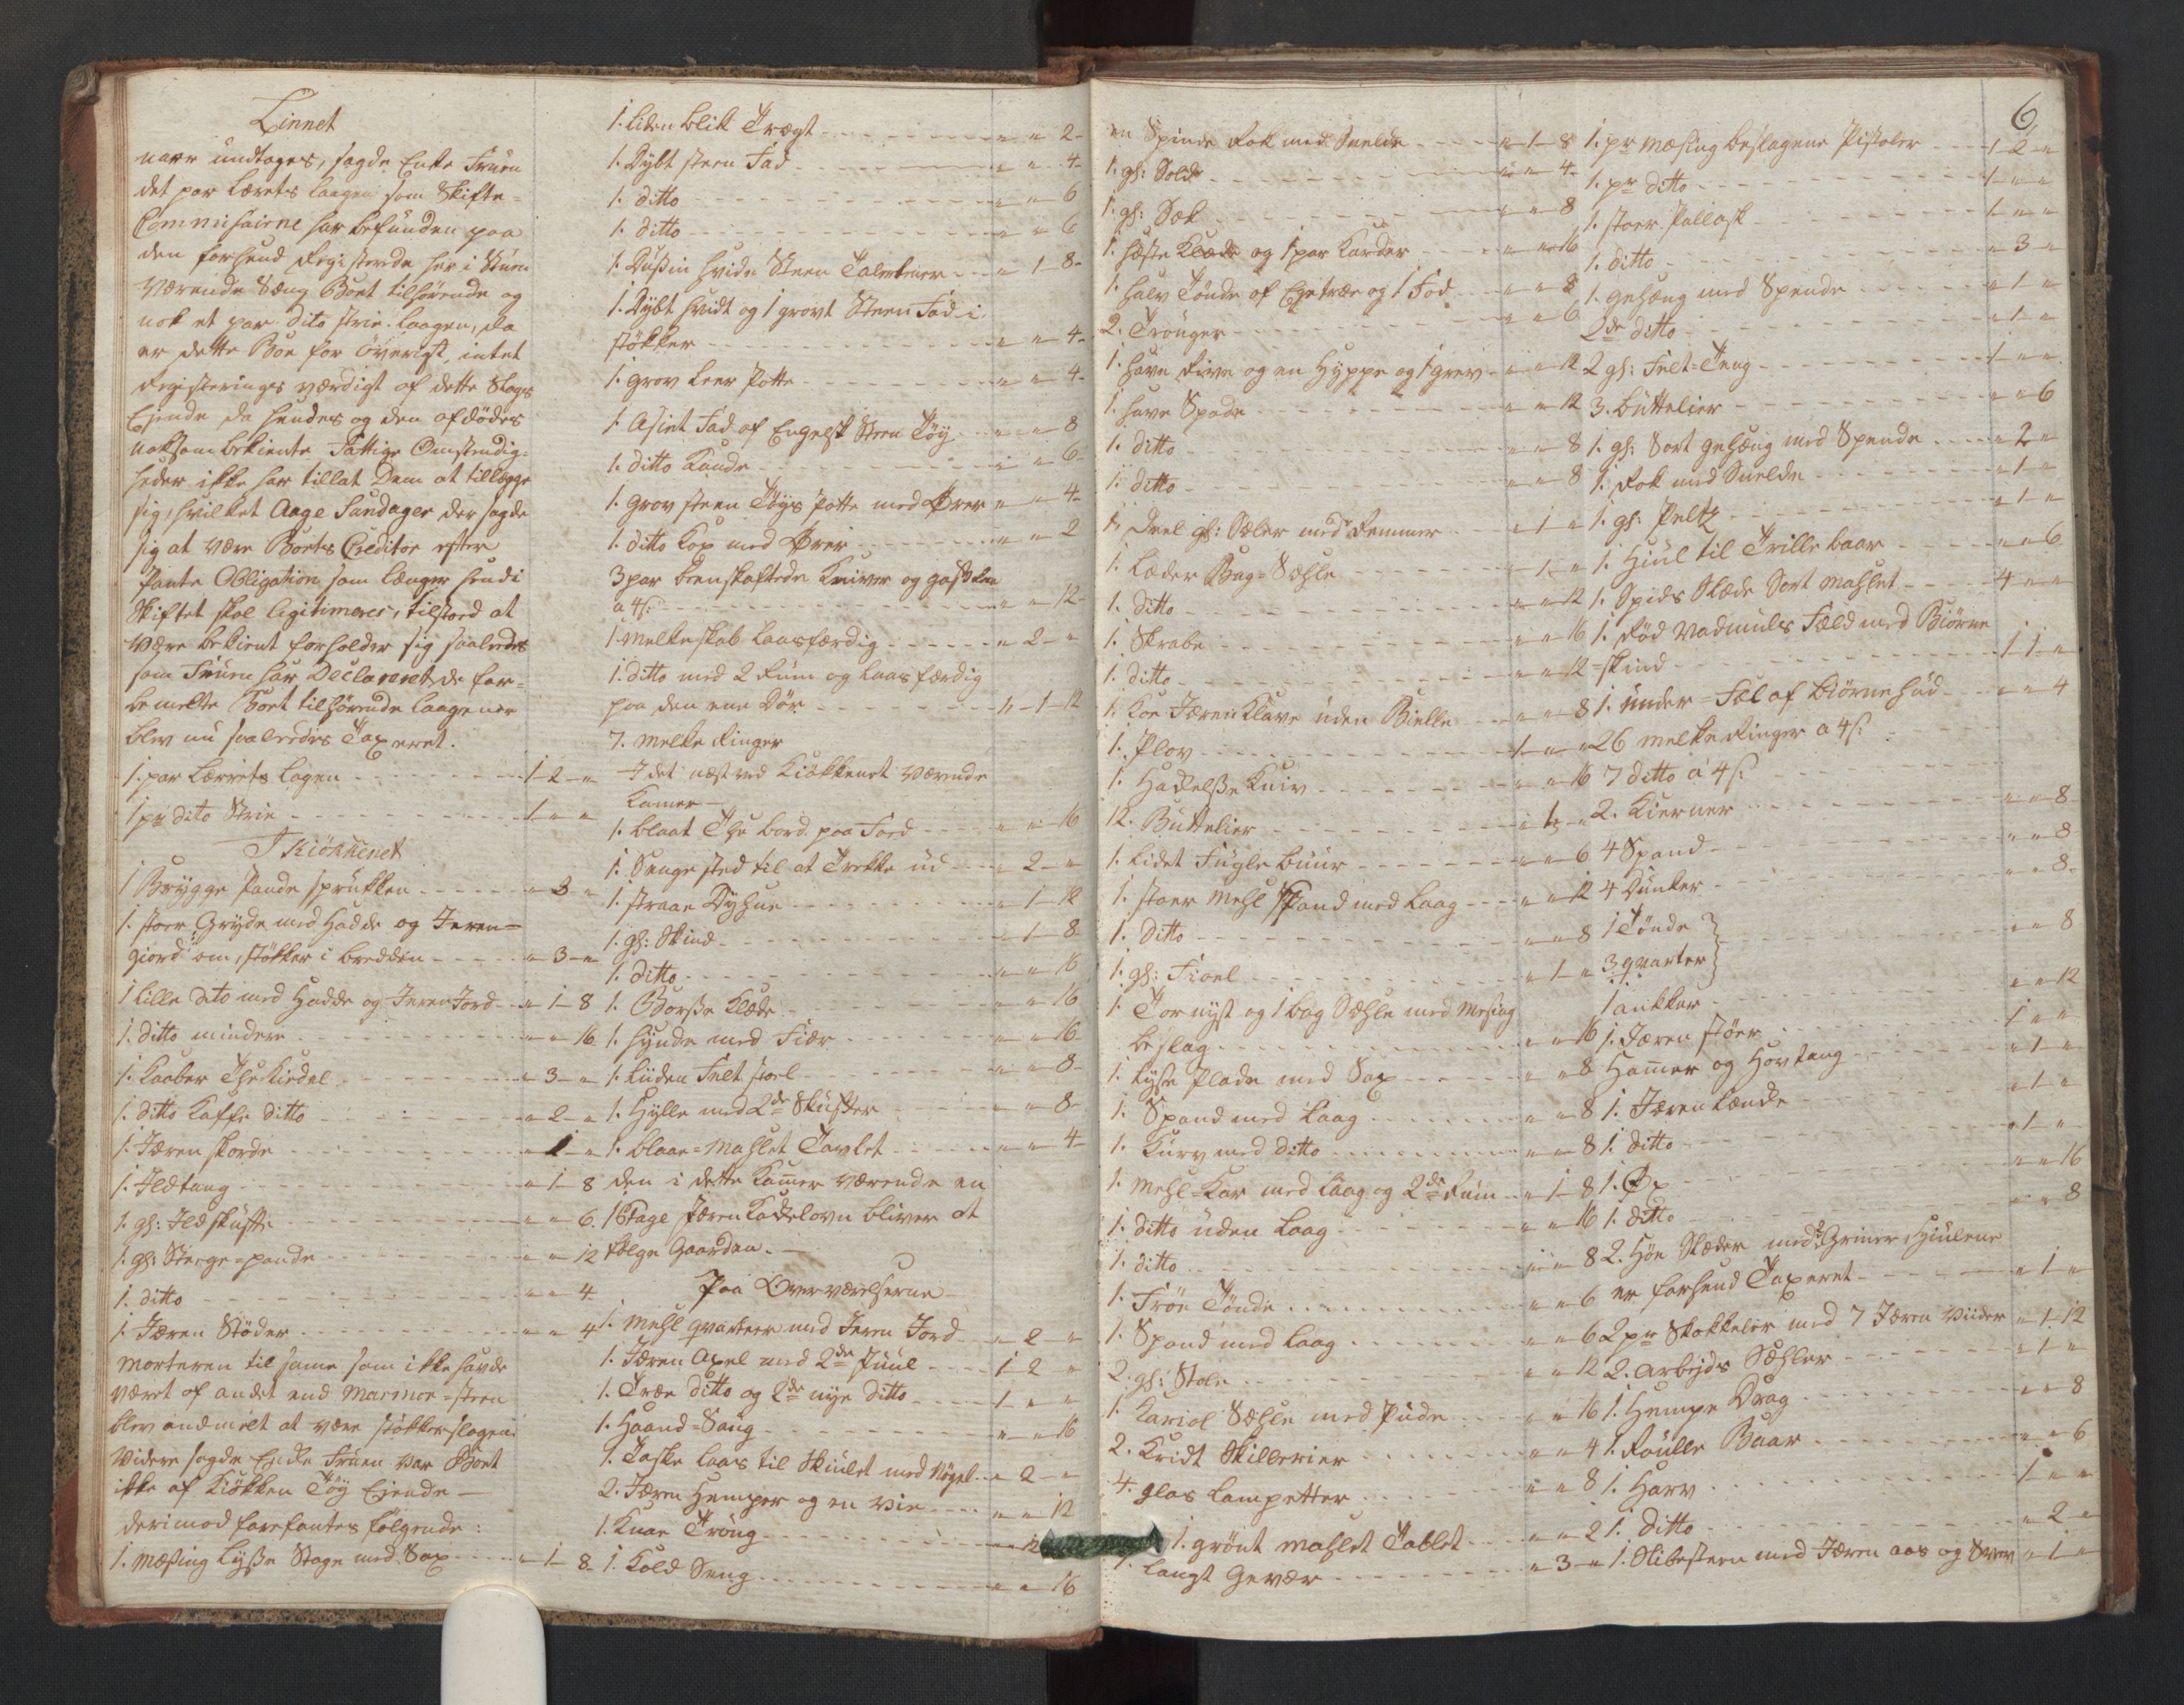 Linnet
naar undtages, sagde Enke Fruen
det par Lærets Laagen som Skifte-
Commihairne har befunden paa
den forhend Registerede her i Stuen
Værende Seng Boet tilhørende og
nok et par dito strie Laagen, da
er dette Boe for øvrigt, intet
Registerings værdigt af dette Slags
Eiende da hendes og den afdødes
noksom bekiente Fattige Omstendig-
heder ikke har tillat Dem at tillegge
sig, hvilket Aage Sandager der sagde
sig at være Boets Creditor efter
Pante Obligation som længer hen i
Skiftet skal legitimeres, tilstoed at
Være bekient forholder sig saaledes
som Fruen har Declareret, de for-
bemelte Boet tilhørende Laagener
blev nu saaledes Taxeret.
1. par Lærrets Lagen 1-2-"
1 pr dito Strie 1-"-"
I Kiøkkenet
1 Brygge Pande sprukken "-3-"
1. stoer Gryde med Hadde og Jeren-
giord om, støkker i bredden "-3-"
1 Lille dito med Hadde og Jeren Jord "-1-8
1. ditto mindre "-"-16
1. Kaaber The Kiedel "-3-"
1. ditto Kaffe ditto "-2-"
1. Jæren skorde "-1-"
1. Ildtang "-1-8
1. gl: Ildskuffe "-"-6
1. gl: Stege-pande "-"-12
1. ditto "-"-4
1. Jæren Støder "-"-4
Morteren til samme som ikke havde
været af andet end Marmor-steen
blev andmelt at være støkkerslagen.
Videre sagde Enke Fruen var Boet
ikke af Kiøkken Tøy Eiende —
derimod forefantes følgende:
1. Mæssing Lysse Stage med Sax "-1-8
1. Liden blik Tragt "-"-2
1. Dybt steen Fad "-"-4
1. ditto "-"-6
1. ditto "-"-6
1. Dussin hvide Steen Talerkener "-1-8
1. Dybt hvidt og 1 grovt Steen Fad i
støkker "-"-4
1. grov Leer Potte "-"-4
1 Asiet Fad af Engelsk Steen Tøy "-"-8
1. ditto Kande "-"-6
1. Grov steen Tøys Potte med Ører "-"-4
1. ditto Kop med Ører "-"-2
3 par beenskaftede Kniver og gafler
a 4s: "-"-12
1 Melkeskab Laasfærdig "-2-"
1. ditto med 2 Rum og Laasfærdig
paa den ene Dør "-1-12
7. Melke Ringer
I det næst ved Kiøkkenet værende
Kamer —
1. blaat The bord paa Foed "-"-16
1. Senge sted til at Trekke ud "-2-"
1. straae Dyhne "-1-12
1. gl: Skind "-1-8
1. ditto "-"-16
1. Borsse Klæde "-"-16
1. Hynde med Fiær "-"-16
1. Liiden Felt stoel "-"-8
1. Hylle med 2de Skuffer "-"-8
1. blaae-Mahlet Tavlet "-"-4
den i dette Kammer værende en
1 Etage Jæren Kackelovn bliver at
følge Gaarden. —
Paa Overværelserne
1. Mehl qvarteer med Jeren Jord "-2-"
1. Jæren Axel med 2de Huul 1-2-"
1. Træe ditto og 2de nye ditto 1-"-"
1. Haand-Saug "-"-16
1. Taske Laas til Skiulet med Nøgel "-2-"
2. Jæren Hemper og en Vie "-"-12
1. Knae Trøng "-"-12
1. Kold Seng "-"-16
6
en Spinde Rok med Snelde "-1-8
1. gl: Sold "-"-4
1. gl: Sek "-"-8
1. Heste Klæde og 1 par Karder "-"-16
1. halv Tønde af Egetræe og 1 Fad "-"-8
2. Trønger "-"-6
1. have Rive og en Hyppe og 1 grev "-"-12
1. have Spade "-"-12
1. ditto "-"-8
1. ditto "-"-8
1. Deel gl: Sæler med Remmer "-1-"
1. Læder Bag-Sæhle "-1-"
1. ditto "-"-12
1. Skrabe "-"-16
1. ditto "-"-12
1. Koe Jæren Klave uden Bielle "-"-8
1. Plov 1-"-"
1. Hackelsse Kniv "-"-16
12. Buttelier "-1-"
1. Lidet Fugle buur "-"-6
1. stoer Mehl Spand med Laag "-"-12
1. ditto "-"-8
1. gl: Fioel "-1-"
1. Tornyst og 1 bag Sæhle med Messing
beslag "-"-16
1. Lysse Plade med Sax "-"-8
1. Spand med Laag "-"-8
1. Kurv med ditto "-"-8
1. Mehl-Kar med Laag og 2de Rum "-1-8
1. ditto uden Laag "-"-16
1. ditto "-"-8
1. Frøe Tønde "-"-6
1. Spand med Laag "-"-6
2. gl: Stole "-"-12
1. Kariol Sæhle med Pude "-"-16
2. Kridt Skillerier "-"-4
4. glas Lampetter "-"-8
1. grønt Mahlet Tablet "-"-2
1. Langt Gevær "-3-"
1. pr Mæssing beslagene Pistoler 1-2-"
1. pr ditto 1-"-"
1. stoer Pallask 1-"-"
1. ditto "-3-"
1. gehæng med Spende "-1-"
2de ditto "-1-"
2 gl: Felt-Teug 1-"-"
3. Buttelier "-"-6
1. gl: Sort gehæng med Spende "-2-"
1. Rok med Snelde "-1-"
1. gl: Peltz "-1-"
1. Hiul til Trillebaar "-"-6
1. Spids Slæde Sort Mahlet 4-"-"
1. Rød Vadmels Fæld med Biørne
skind 1-1-"
1. Under-Fæl af Biørnehud "-"-4
26 Melke Ringer a 4s:
7 ditto a 4s
2. Kierner "-"-8
4 Spand "-"-8
4 Dunker "-"-8
1 Tønde
3 qvarter "-"-8
1 ankker "-"-12
1. Jæren støer 1-"-"
Hammer og Hovtang "-1-"
1. Jæren Lænke "-1-"
1. ditto "-1-"
1. Øx "-"-16
1. ditto "-"-8
2. Høe Slæder med Griner, Hiulene
er forhend Taxeret "-1-"
2 pr Skokkeler med 7 Jæren Viider "-1-12
2. Arbejds Sæhler "-1-"
1. Hempe Drag "-"-8
1. Roulle Baar "-"-6
1. Harv 1-"-"
1. ditto "-2-"
1. Slibesteen med Jæren aas og Svev "-1-"